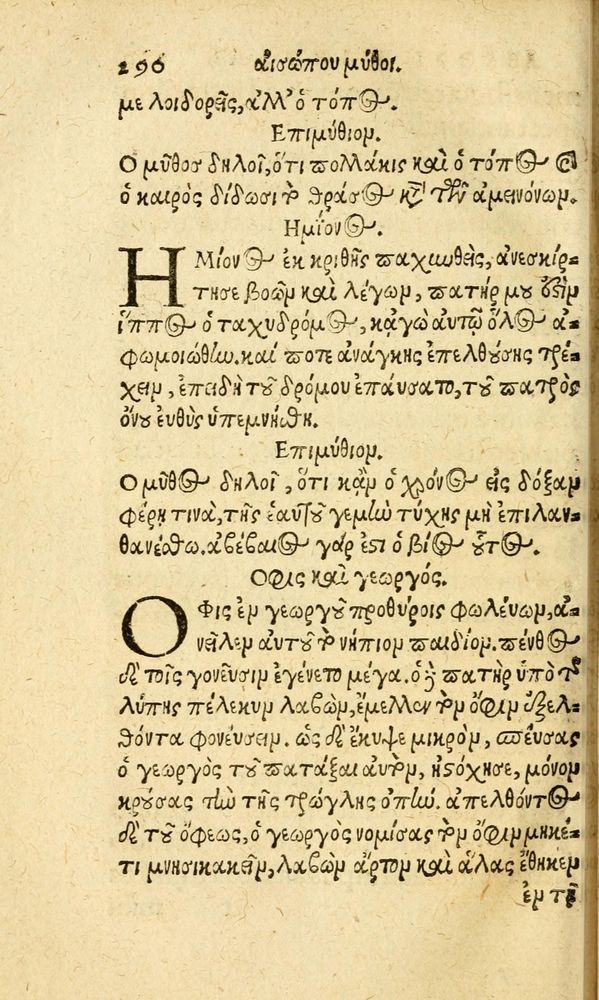 296 αἰσώπου μῦθοι.
με λοιδορεῖς, ἀλλ' ὁ τόπος.
Επιμύθιον.
Ο μῦθος δηλοῖ, ὅτι πολλάκις καὶ ὁ τόπος καὶ
ὁ καιρὸς δίδωσι τὸ θράσος κατὰ τῶν ἀμεινόνων.
Ημίονος.
ΗΜίονος ἐκ κριθῆς παχυνθεὶς, ἀνεσκίρ-
τησε βοῶν καὶ λέγων, πατήρ μου ἐστὶν
ἵππος ὁ ταχυδρόμος, κᾀγὼ αὐτῷ ὅλος ἀ-
φωμοιώθην. καί ποτε ἀνάγκης ἐπελθούσης τρέ-
χειν, ἐπειδὴ τοῦ δρόμου ἐπαύσατο, τοῦ πατρὸς
ὄνου εὐθὺς ὑπεμνήσθη.
Επιμύθιον.
Ο μῦθος δηλοῖ, ὅτι κἂν ὁ χρόνος εἰς δόξαν
φέρῃ τινὰ, τῆς ἑαυτοῦ γενὴν τύχης μὴ ἐπιλαν-
θανέσθω. ἀβέβαιος γάρ ἐστι ὁ βίος οὗτος.
Οφις καὶ γεωργός.
ΟΦις ἐν γεωργοῦ προθύροις φωλεύων, ἀ-
νεῖλεν αὐτοῦ τὸ νήπιον παιδίον. πένθος
δὲ τοῖς γονεῦσιν ἐγένετο μέγα. ὁ δὲ πατὴρ ὑπὸ τῆς
λύπης πέλεκυν λαβὼν, ἔμελλεν τὸν ὄφιν ἐξελ-
θόντα φονεύσειν. ὡς δὲ ἔκυψε μικρὸν, σπεύσας
ὁ γεωργὸς τοῦ πατάξαι αὐτὸν, ἠστόχησε, μόνον
κρούσας τὴν τῆς τρώγλης ὀπήν. ἀπελθόντος
δὲ τοῦ ὄφεως, ὁ γεωργὸς νομίσας τὸν ὄφιν μηκέ-
τι μνησικακεῖν, λαβὼν ἄρτον καὶ ἅλας ἔθηκεν
ἐν τῇ